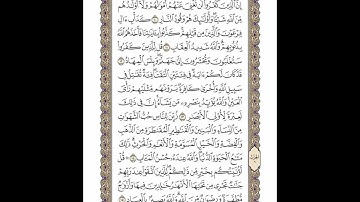 إِنَّ ٱلَّذِينَ كَفَرُوا۟ لَن تُغْنِىَ عَنْهُمْ أَمْوَٰلُهُمْ وَلَآ أَوْلَٰدُهُم
مِّنَ ٱللَّهِ شَيْـًٔا ۖ وَأُو۟لَٰٓئِكَ هُمْ وَقُودُ ٱلنَّارِ ۝١٠ كَدَأْبِ ءَالِ
فِرْعَوْنَ وَٱلَّذِينَ مِن قَبْلِهِمْ ۚ كَذَّبُوا۟ بِـَٔايَٰتِنَا فَأَخَذَهُمُ ٱللَّهُ
بِذُنُوبِهِمْ ۗ وَٱللَّهُ شَدِيدُ ٱلْعِقَابِ ۝١١ قُل لِّلَّذِينَ كَفَرُوا۟
سَتُغْلَبُونَ وَتُحْشَرُونَ إِلَىٰ جَهَنَّمَ ۚ وَبِئْسَ ٱلْمِهَادُ ۝١٢
قَدْ كَانَ لَكُمْ ءَايَةٌ فِى فِئَتَيْنِ ٱلْتَقَتَا ۖ فِئَةٌ تُقَٰتِلُ فِى
سَبِيلِ ٱللَّهِ وَأُخْرَىٰ كَافِرَةٌ يَرَوْنَهُم مِّثْلَيْهِمْ رَأْىَ
ٱلْعَيْنِ ۚ وَٱللَّهُ يُؤَيِّدُ بِنَصْرِهِۦ مَن يَشَآءُ ۗ إِنَّ فِى ذَٰلِكَ
لَعِبْرَةً لِّأُو۟لِى ٱلْأَبْصَٰرِ ۝١٣ زُيِّنَ لِلنَّاسِ حُبُّ ٱلشَّهَوَٰتِ
مِنَ ٱلنِّسَآءِ وَٱلْبَنِينَ وَٱلْقَنَٰطِيرِ ٱلْمُقَنطَرَةِ مِنَ ٱلذَّهَبِ
وَٱلْفِضَّةِ وَٱلْخَيْلِ ٱلْمُسَوَّمَةِ وَٱلْأَنْعَٰمِ وَٱلْحَرْثِ ۗ ذَٰلِكَ
مَتَٰعُ ٱلْحَيَوٰةِ ٱلدُّنْيَا ۖ وَٱللَّهُ عِندَهُۥ حُسْنُ ٱلْمَـَٔابِ ۝١٤ ۞ قُلْ
أَؤُنَبِّئُكُم بِخَيْرٍ مِّن ذَٰلِكُمْ ۚ لِلَّذِينَ ٱتَّقَوْا۟ عِندَ رَبِّهِمْ
جَنَّٰتٌ تَجْرِى مِن تَحْتِهَا ٱلْأَنْهَٰرُ خَٰلِدِينَ فِيهَا وَأَزْوَٰجٌ
مُّطَهَّرَةٌ وَرِضْوَٰنٌ مِّنَ ٱللَّهِ ۗ وَٱللَّهُ بَصِيرٌۢ بِٱلْعِبَادِ ۝١٥